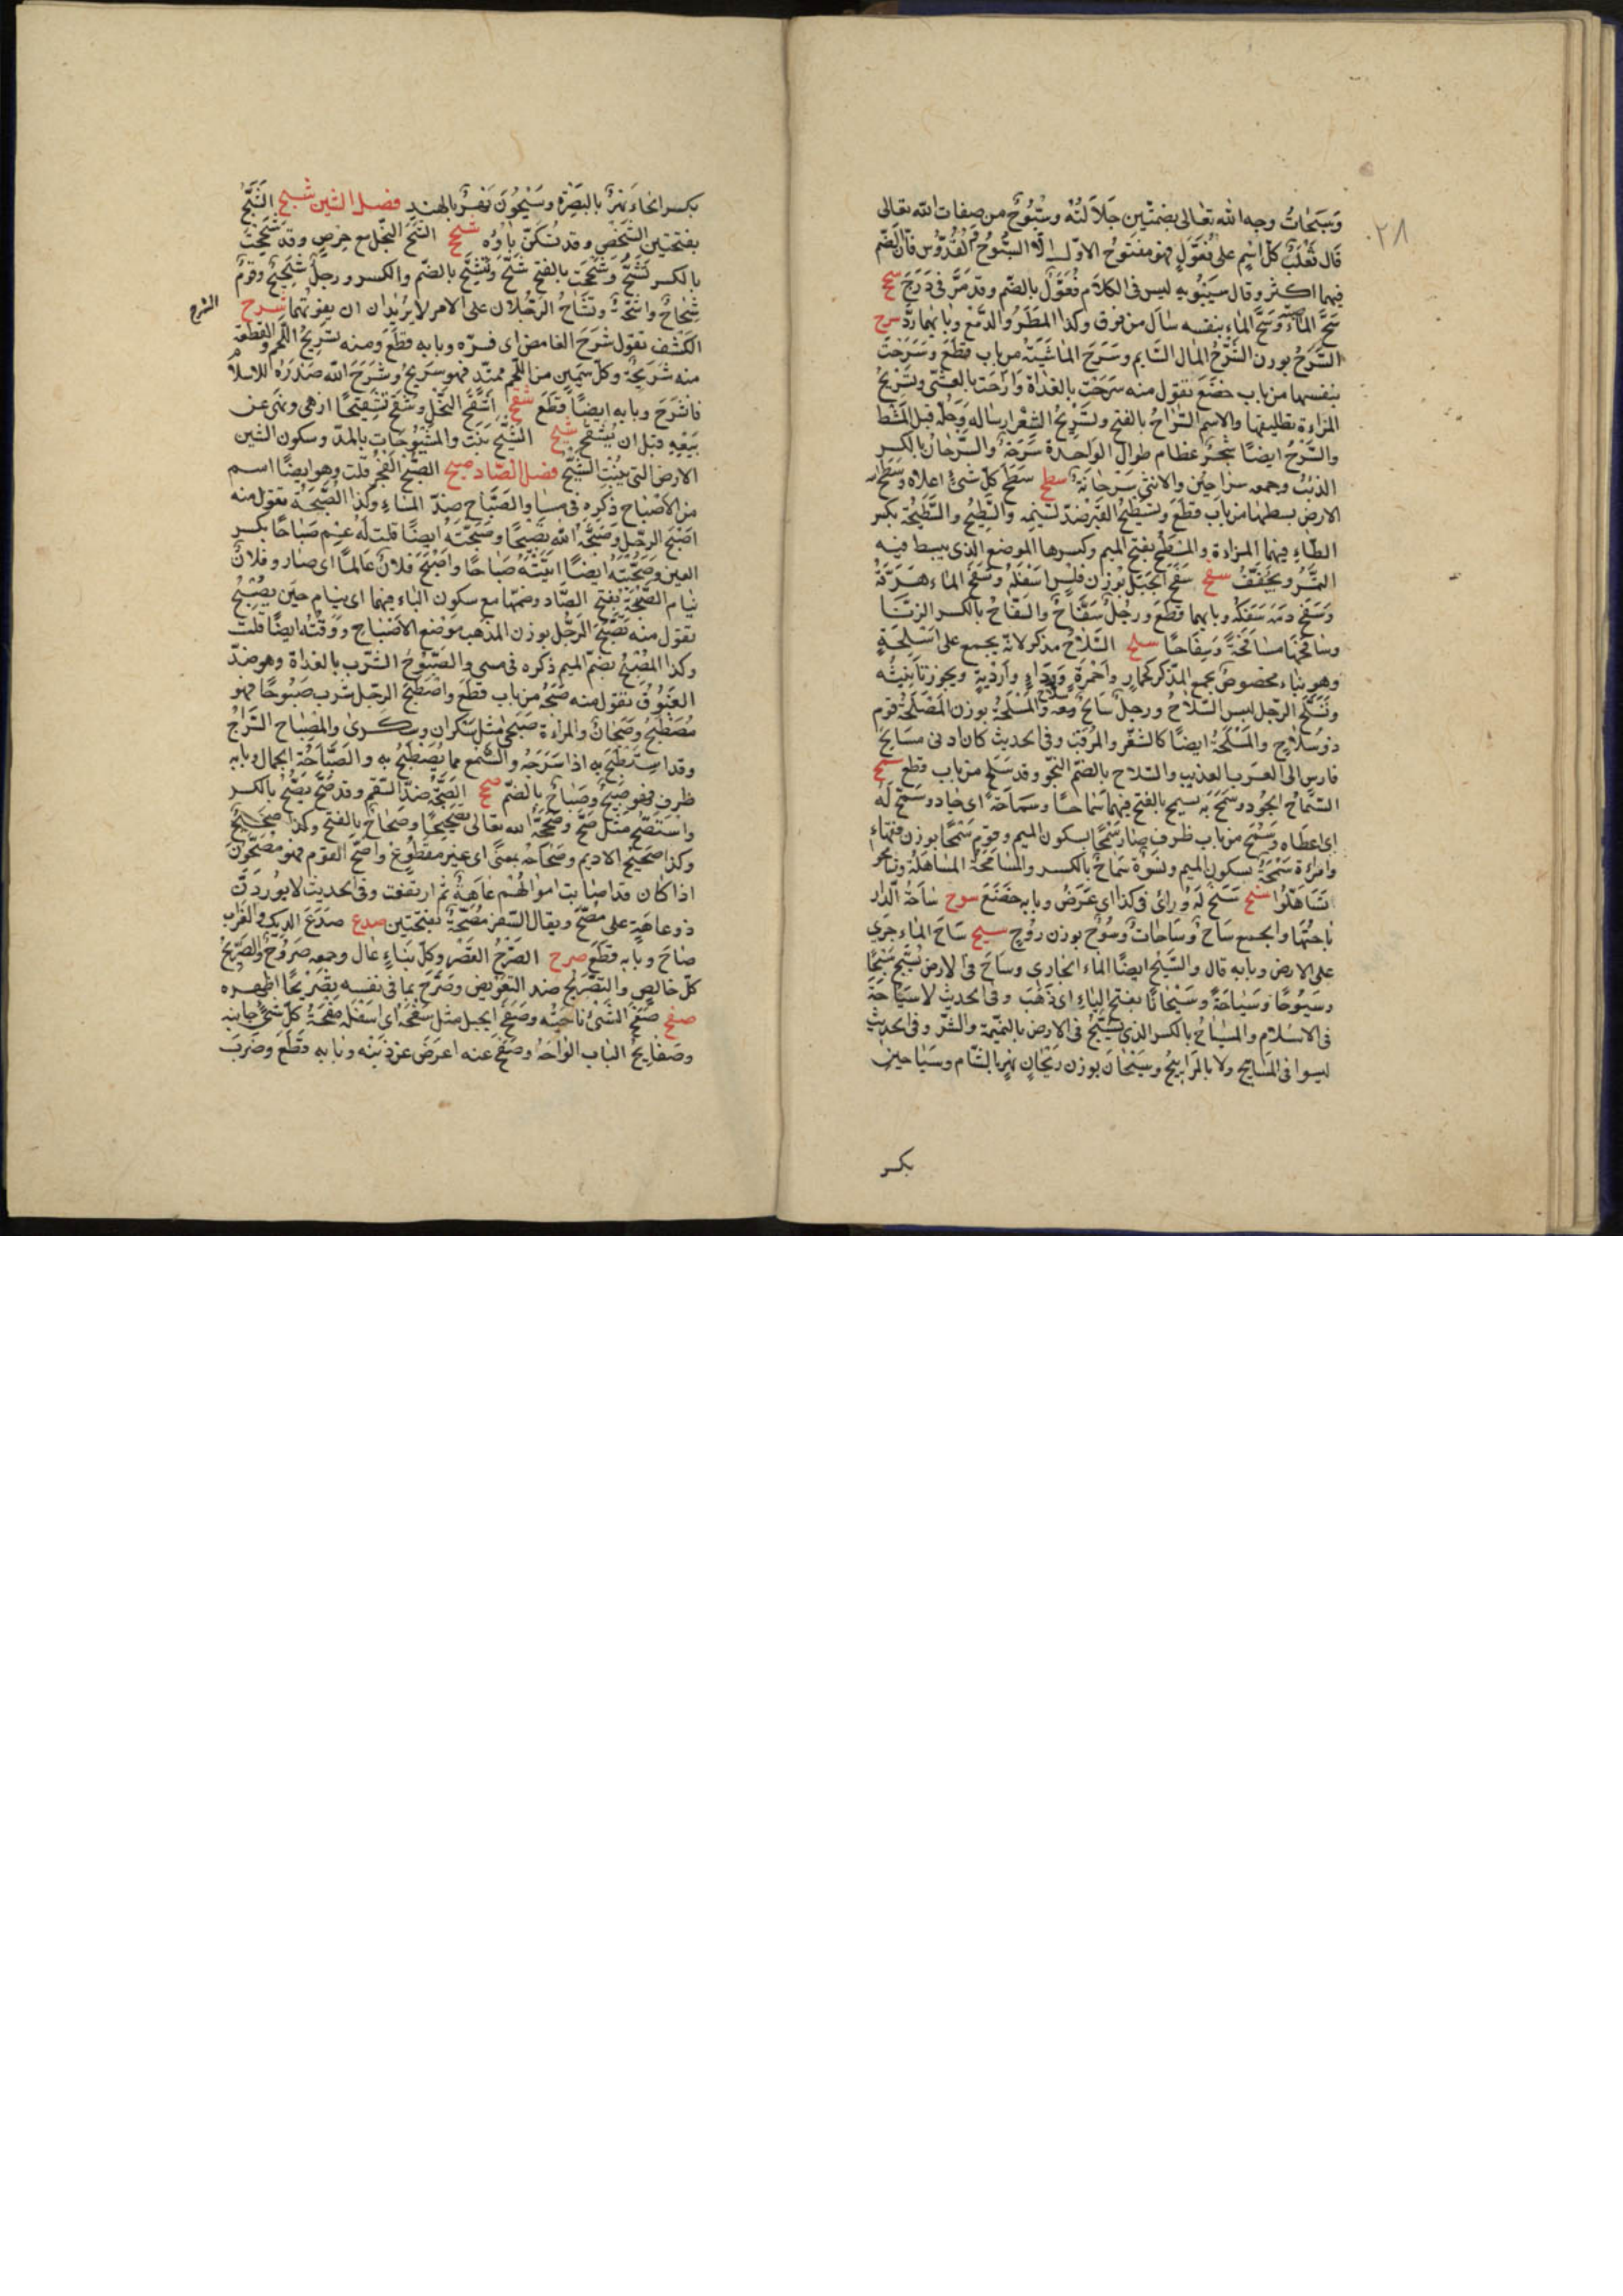 ٢٨
وَسُبُحَاتُ وجه الله تعالى بضمتين جَلَالَتُهُ وسُبُّوحٌ من صفات الله تعالى
قال ثعلبٌ كلّ اسم على فَعُّولٍ فهو مفتوح الاوّل الا السُّبُّوحُ والقُدُّوس فانّ الضم
فيهما اكثر وقال سيبويه ليس فى الكلام فُعُّول بالضم وقد مَرَّ فى ذَرَحَ سحح
سَحَّ الماءَ صَبّه وَسَحَّ الماء بنفسه سال من فوق وكذا المطر والدمع وبابهما ردّ سرح
السَّرْحُ بوزن الشَّرْحُ المال السَّايم وسَرَحَ الماشيَةَ من باب قطع وسَرَحَتْ
بنفسها من باب خضع تقول منه سَرَحَتْ بالغداة وَرَاحَت بالعشىّ وتَسْرِيحُ
المراءة تطليقها والاسم السَّرَاحُ بالفتح وتَسْرِيحُ الشعر ارساله وحلّه قبل المَشْط
والسَّرْحُ ايضًا شَجَرٌ عظام طوال الواحدة سَرْحَةٌ والسِّرْحَانُ بالكسر
الذئب وجمعه سَرَاحِين والانثى سَرْحَانَة سطح سَطْحُ كلّ شئ اعلاه وسَطَحَ الله
الارض بسطها من باب قَطَعَ وتَسْطِيحُ القبر ضدّ تسنيمه والسَّطِيحُ والسَّطِيحَة بكسر
الطاء فيهما المزادة والمسْطَح بفتح الميم وكسرها الموضع الذى يبسط فيه
التَّمْرُ ويُجَفَّفُ سفح سَفْحُ الجَبَل بوزن فَلْسٍ اسْفَلُهُ وَسَفَحَ الماء هَرَقَهُ
وَسَفَحَ دمَه سَفَكَهُ وبابهما قَطَعَ ورجُلٌ سَفَّاحٌ والسِّفَاحُ بالكسر الزنَا
وسَافَحَهَا مُسَافَحَةً وَسِفَاحًا سلح السِّلَاحُ مذكر لانّه يجمع على اَسْلِحَةٍ
وهو بناء مخصوصٌ بجمع المذكر كحمار واَحْمِرَةٍ وَرِدَاءٍ واَرْدِيَةٍ ويجوز تأنيثُه
وتَسَلَّحَ الرجل لبس السِّلاحَ ورجل سَالِحٌ معه سلاح والمَسْلَحَةُ بوزن المَصْلَحَةُ قوم
ذوُ سِلَاحٍ والمَسْلَحَةُ ايضًا كالثغر والمرْقب وفى الحديث كان ادنى مسَالِحَ
فارس الى العَرَب العذيب والسُلاح بالضم النجو وقد سَلَحَ من باب قطع سمح
السَّمَاحُ الجود وسَمَحَ به يسمح بالفتح فيهما سَمَاحًا وسَمَاحَةً اى جاد وسَمَحَ لَهُ
اى اعطاه وسَمُحَ من باب ظرف صار سَمْحًا بسكون الميم وقوم سُمَحَاءُ بوزن فقهاء
وامراءة سَمْحَةٌ بسكون الميم ونسوة سِمَاحٌ بالكسر والمُسَامَحَةُ المساهَلَةُ وتسامحوا
تَسَاهَلُوا سنح سَنَحَ لَهُ رائ فى كذا اى عَرَضَ وبابه خَضَعَ سوح سَاحَةُ الدار
باحتها والجمع سَاحٌ وسَاحَاتٌ وسُوحٌ بوزن روُحٍ سيح سَاحَ الماء جَرَي
على الارض وبابه قال والسَّيْحُ ايضًا الماء الجارى وساحَ فى الارض يَسيحُ سَيْحًا
وسُيُوحًا وسِيَاحَةً وسَيَحَانًا بفتح الياء اى ذَهَبَ وفى الحديث لا سِيَاحَةَ
فى الاسلام والمِسْيَاحُ بالكسر الذى يسيح فى الارض بالنميمة والشرّ وفى الحديث
ليسوا فى المسَاييح ولا بالمَذَاييع وسَيْحَان بوزن رَيْحَانٍ نهر بالشام وسَيَاحين
بكسر
بكسر الحاء نهرٌ بالبَصْرة وسَيْحُونَ نَهْرٌ بالهند فصل الشين شبح الشَّبَحُ
بفتحتين الشخص وقد تُسَكَنُ باؤُه شحح الشُّحُّ البخل مع حرص وقد شَحِحْتَ
بالكسر تَشَحُّ وشَحَحْتَ بالفتح تَشُحُّ وتَشِحُّ بالضم والكسر ورجل شَحِيحٌ وقومٌ
شِحَاحٌ واَشِحَّةٌ وتَشَاحَّ الرَّجُلان على الامر لا يُرِيدان ان يفوتهما شرح الشرح
الكَشْف تقول شَرَحَ الغامض اى فسّره وبابه قطَعَ ومنه تشرِيحُ اللحم والقطعة
منه شَرِيحَةٌ وكلّ سَمين من اللحم ممتدّ فهو شريح وشَرَحَ الله صَدْرَهُ للاسلام
فانشَرَحَ وبابه ايضًا قَطَعَ شقح اَشْقَحَ النَّخْل وشَقَّحَ تَشْقِيحًا ازهى ونَهَى عن
بَيْعِهِ قبل ان يُشَقِّحَ شيح الشِّيحُ نَبَت والمَشْيُوحَات بالمدّ وسكون الشين
الارض التى تُنبت الشيح فصل الصاد صبح الصُّبْحُ الفَجْرُ قلت وهو ايضًا اسم
من الاصْبَاح ذكره فى مسا والصَّبَاح ضدّ المساء وكذا الصَّبِيحَةُ تقول منه
اَصْبَحَ الرجل وصَبَّحَهُ الله تَصْبِيحًا وصَبَّحْتُهُ ايضًا قلت لَهُ عِمْ صَبَاحًا بكسر
العين وصَبَّحْتُهُ ايضًا اتيته صَبَاحًا وأَصْبَحَ فلانٌ عَالِمًا اى صار وفلانٌ
ينام الصُّبْحَةَ بفتح الصّاد وضمها مع سكون الباء فيهما اى ينام حين يُصْبِحُ
تقول منه تَصَبَّحَ الرجُل بوزن المذهب موضع الاصْبَاح وَوَقْتُه ايضًا قلت
وكذا المُصْبَحُ بضم الميم ذكره فى مسى والصَّبُوحُ الشرب بالغداة وهو ضدّ
الغَبُوق تقول منه صَبَحَهُ من باب قطَعَ واصْطَبَحَ الرجل شرب صَبُوحًا فهو
مُصْطَبِحٌ وصَبْحَانُ والمراءة صَبْحَى مثل سَكْران وسكرى والمِصْبَاح السِّرَاجُ
وقد استصْبَحَ به اذا سَرَجَهُ والشمع مما يُصْطَبَحُ به والصَّبَاحَةُ الجمال وبابه
ظرف فهو صَبِيحٌ وصُبَاحٌ بالضم صحح الصِّحَّةُ ضدّ السّقم وقد صَحَّ يَصِحُّ بالكسر
واستَصَحَّ مثل صَحَّ وصَحَّحَهُ الله تعالى تصْحِيحًا وصَحَاحٌ بالفتح وكذا صَحِيحٌ
وكذا صحيح الاديم وصَحَاحُهُ بمعنًى اى غير مقطُوع واصَحَّ القوم فهو مُصِحُّونَ
اذا كان قد اصابت اموالهُم عَاهَةٌ ثم ارتفعت وفى الحديث لا يوُرِدَنَّ
ذو عاهَةٍ على مُصِحٍّ ويقال السَّفَر مُصِحَّةٌ بفتحتين صدح صَدَحَ الديك والغراب
صَاحَ وبابه قطَعَ صرح الصَّرْحُ القَصْر وكلّ بناءٍ عالٍ وجمعه صُروُحٌ والصَّرِيحُ
كلّ خالص والتصْريح ضد التعريض وصَرَّحَ بما فى نفسه تصريحًا اظهره
صفح صَفْحُ الشَّئ ناحيته وصَفْحُ الجبل مثل سَفْحُهُ اى اسفله وصفْحَةُ كلّ شئ جانبه
وصَفايحُ الباب الواحَهُ وصَفَحَ عنه اعرَضَ عن ذنبه وبابه قَطَعَ وضَرَبَ